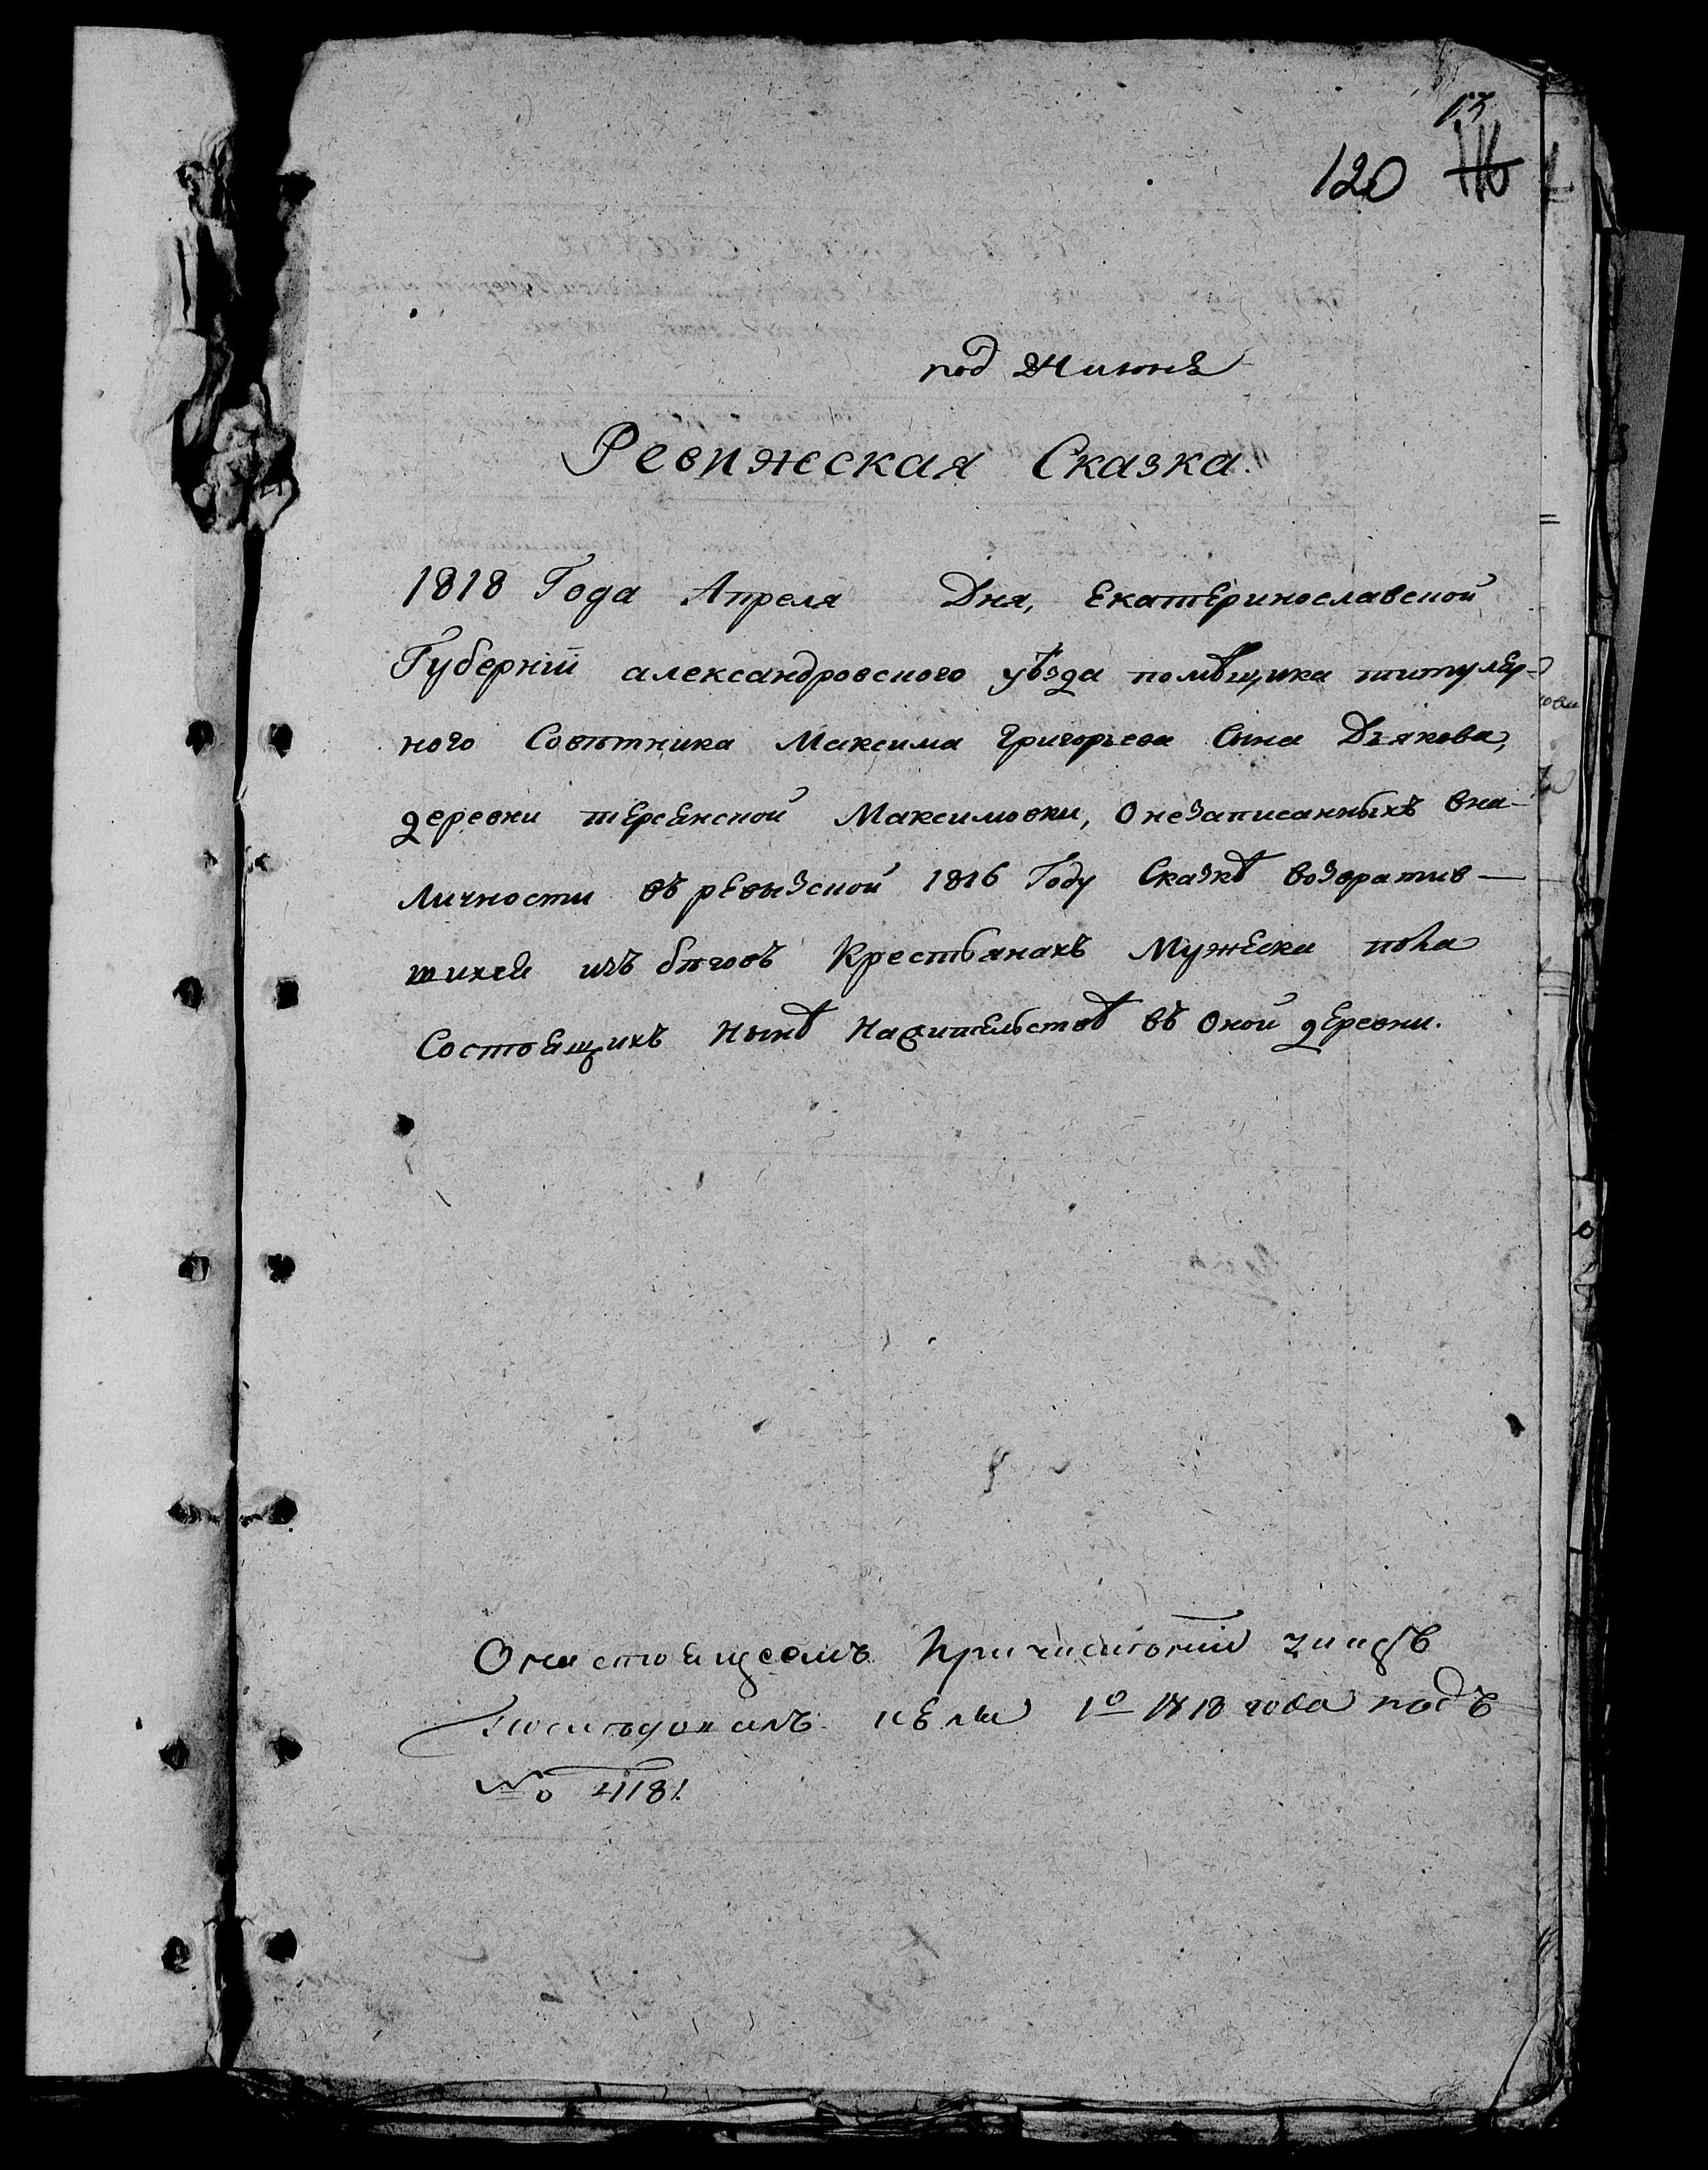 120 116
под 24 июнѣ
Ревижеская Сказка.
1818 Года Апреля Дня, Екатеринославской
Губерніи александровского уѣзда помѣщика титуляр-
ного Совѣтника Максима Григорьева Сына Дьякова,
деревни терсянской Максимовки, О незаписанныхъ вна-
личности въ ревизской 1816 Году Сказкѣ возвратив-
шихся изъ бѣговъ Крестьянахъ Мужеска пола
Состоящихъ нынѣ Нажительствѣ въ Оной деревни.
О настоящеемъ Причислении
1º 1818 года подъ
№ 4181